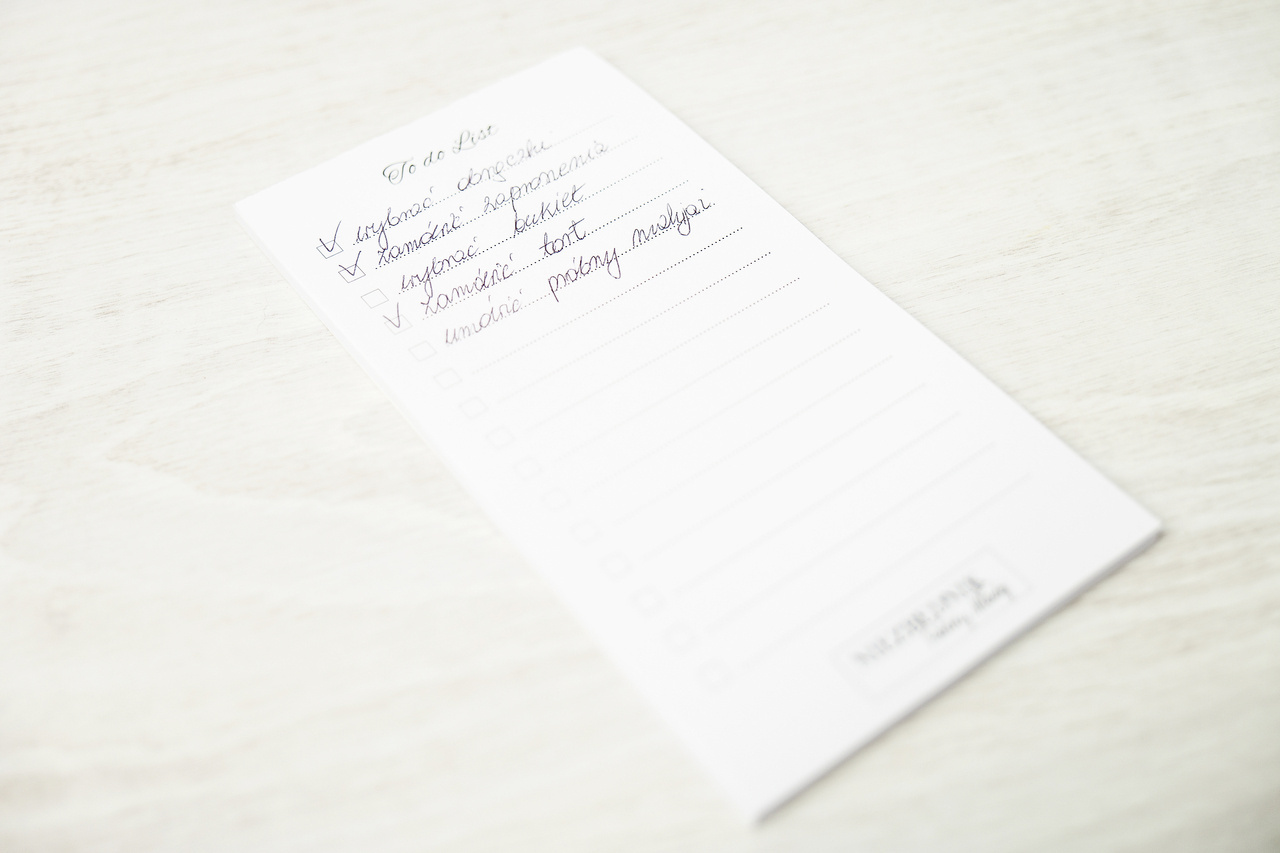 To do List
wybrać obrączki
zamówić zaproszenia
wybrać bukiet
zamówić tort
umówić próbny makijaż